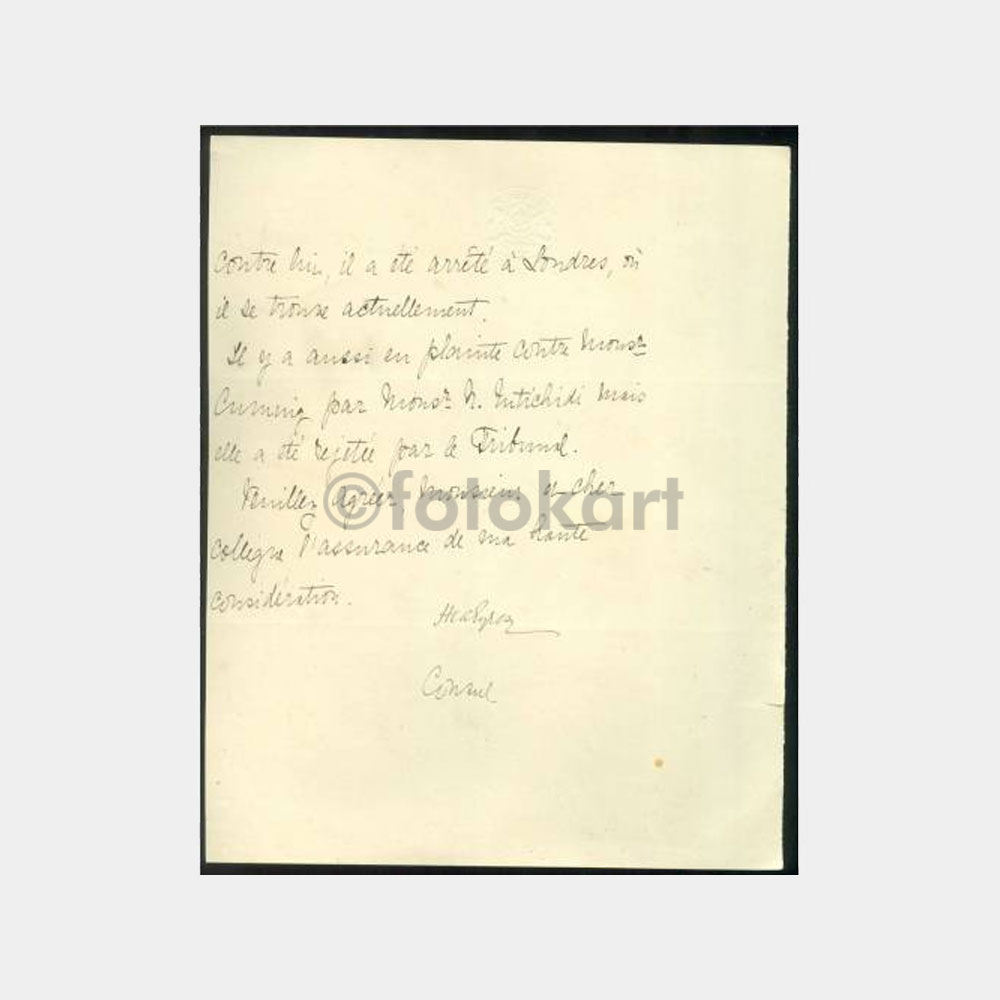 contre lui, il a été arrêté à Londres, où
il se trouve actuellement.
Il y a aussi eu plainte contre Monsr
Cumming par Monsr N. mais
elle a été rejetée par le Tribunal.
Veuillez agréer, Monsieur et cher
©fotokart
collègue l'assurance de ma haute
considération.
Consul